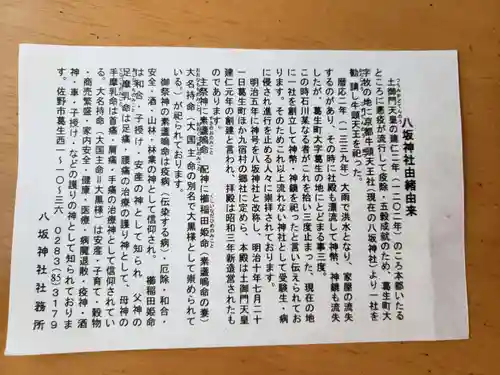 八坂神社由緒由来
土御門天皇の建仁二年(一二〇二年)のころ本郡いたる
ところに悪疫が流行して疫除・五穀成就のため、葛生町大
字牧の地に京都牛頭天王社(現在の八坂神社)より一社を
勧請し牛頭天王を祀った。
暦応二年(一三三九年)大雨で洪水となり、家屋の流失
するのがあり、その時に社殿も漂流して神幣、神鏡も流失
したが、葛生町大字葛生の地にとどまる事三度。
この時石川某なる者がこれを拾い三度止まった、現在の地
に一社を創立して神幣・神鏡を祀ったと言い伝えられてお
ります。そのためこれ以上は流れない神社として受験生・病
に侵され進行を止める人々に崇拝されております。
明治五年に神号を八坂神社と改称し、明治十年七月二十
一日葛生町ほか九宿村の郷社に定め、本殿は土御門天皇
建仁元年の創建と言われ、拝殿は昭和三年新造営されたも
のであります。
主祭神に素盞嗚命 配神に櫛稲田姫命(素盞嗚命の妻)
大名持命(大国主命の別名で大黒様)として崇められて
いる)が祀られております。
御祭神の素盞嗚命は疫病(伝染する病) 厄除・和合・
安全・酒・山林・林業の神として信仰され、 櫛稲田姫命
は和合・子授け・安産の神として知られ、父神の
足摩乳命は足痛・腰痛の治療の護り神として、母神の
手摩乳命は首痛・肩痛・手痛の治療神として信仰されてい
る。大名持命(大国主命＝大黒様)は安産・子育て・穀物
・商売繁盛・家内安全・健康・医療・病魔退散・疫神・酒
神・車・子授け・などの護りの神として知られておりま
す。佐野市葛生西一ー一〇ー三六 0283(85)3179
八坂神社社務所